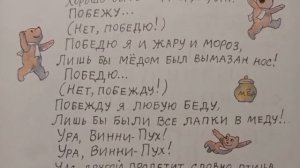 Хорошо б
ПОБЕЖУ...
(НЕТ, ПОБЕДЮ!)
ПОБЕДЮ Я И ЖАРУ И МОРОЗ,
ЛИШЬ БЫ МЁДОМ БЫЛ ВЫМАЗАН НОС!
ПОБЕДЮ...
(НЕТ, ПОБЕЖДУ!)
ПОБЕЖДУ Я ЛЮБУЮ БЕДУ,
ЛИШЬ БЫ БЫЛИ ВСЕ ЛАПКИ В МЕДУ!..
УРА, ВИННИ-ПУХ!
УРА, ВИННИ-ПУХ!
ПРОЛЕТИТ СЛОВНО ПТИЦА